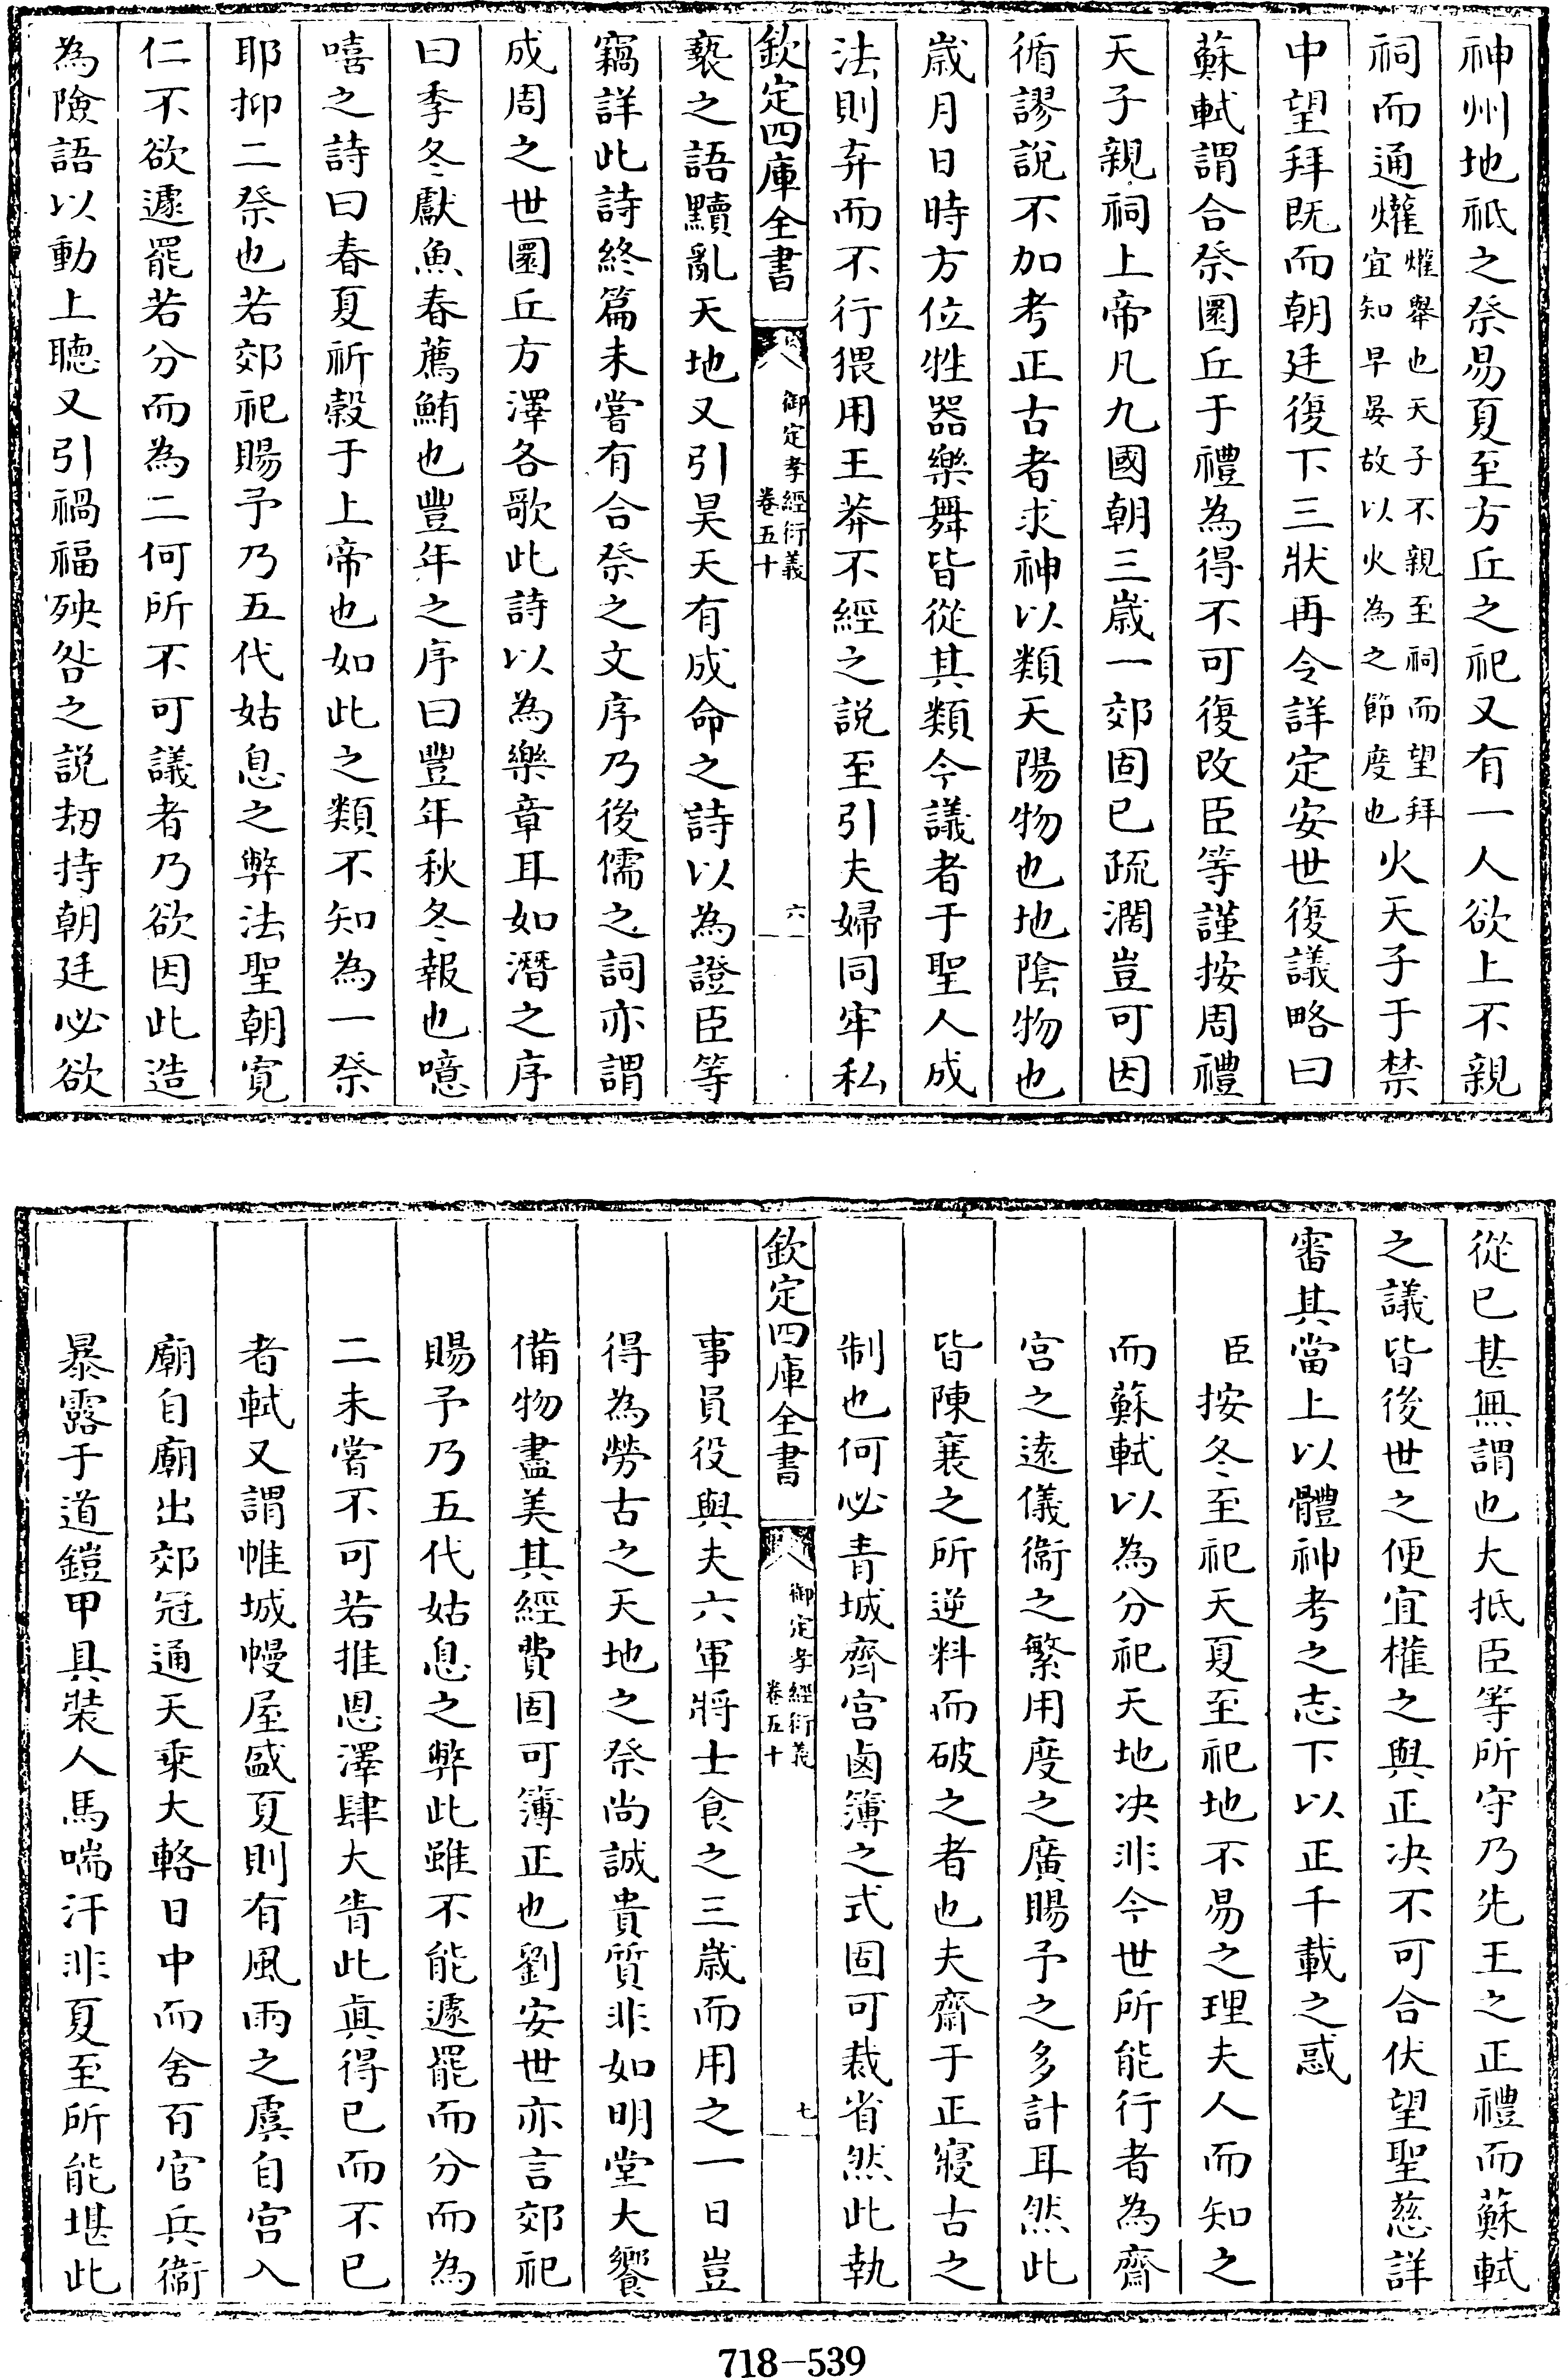 神州地祇之祭易夏至方丘之祀又有一人欲上不親
祠而通爟爟舉也天子不親至祠而望拜宜知早晏故以火為之節度也火天子于禁
中望拜既而朝廷復下三狀再令詳定安世復議略曰
蘇軾謂合祭圜丘于禮為得不可復改臣等謹按周禮
天子親祠上帝凡九國朝三歲一郊固已疏濶豈可因
循謬說不加考正古者求神以類天陽物也地陰物也
歲月日時方位牲器樂舞皆從其類今議者于聖人成
法則弃而不行猥用王莽不經之說至引夫婦同牢私
欽定四庫全書
御定孝經衍義
卷五十
六
褻之語黷亂天地又引昊天有成命之詩以為證臣等
竊詳此詩終篇未嘗有合祭之文序乃後儒之詞亦謂
成周之世圜丘方澤各歌此詩以為樂章耳如潛之序
曰季冬獻魚春薦鮪也豐年之序曰豐年秋冬報也噫
嘻之詩曰春夏祈穀于上帝也如此之類不知為一祭
耶抑二祭也若郊祀賜予乃五代姑息之弊法聖朝寛
仁不欲遽罷若分而為二何所不可議者乃欲因此造
為險語以動上聽又引禍福殃咎之說刼持朝廷必欲
從已甚無謂也大抵臣等所守乃先王之正禮而蘇軾
之議皆後世之便宜權之與正决不可合伏望聖慈詳
審其當上以體神考之志下以正千載之惑
臣按冬至祀天夏至祀地不易之理夫人而知之
而蘇軾以為分祀天地决非今世所能行者為齋
宫之遠儀衞之繁用度之廣賜予之多計耳然此
皆陳襄之所逆料而破之者也夫齋于正寢古之
制也何必青城齊宫鹵簿之式固可裁省然此執
欽定四庫全書
御定孝經衍義
卷五十
七
事員役與夫六軍將士食之三歲而用之一日豈
得為勞古之天地之祭尚誠貴質非如明堂大饗
備物盡美其經費固可簿正也劉安世亦言郊祀
賜予乃五代姑息之弊此雖不能遽罷而分而為
二未嘗不可若推恩澤肆大眚此真得已而不已
者軾又謂帷城幔屋盛夏則有風雨之虞自宫入
廟自廟出郊冠通天乘大輅日中而舍百官兵衞
暴露于道鎧甲具裝人馬喘汗非夏至所能堪此
718-539